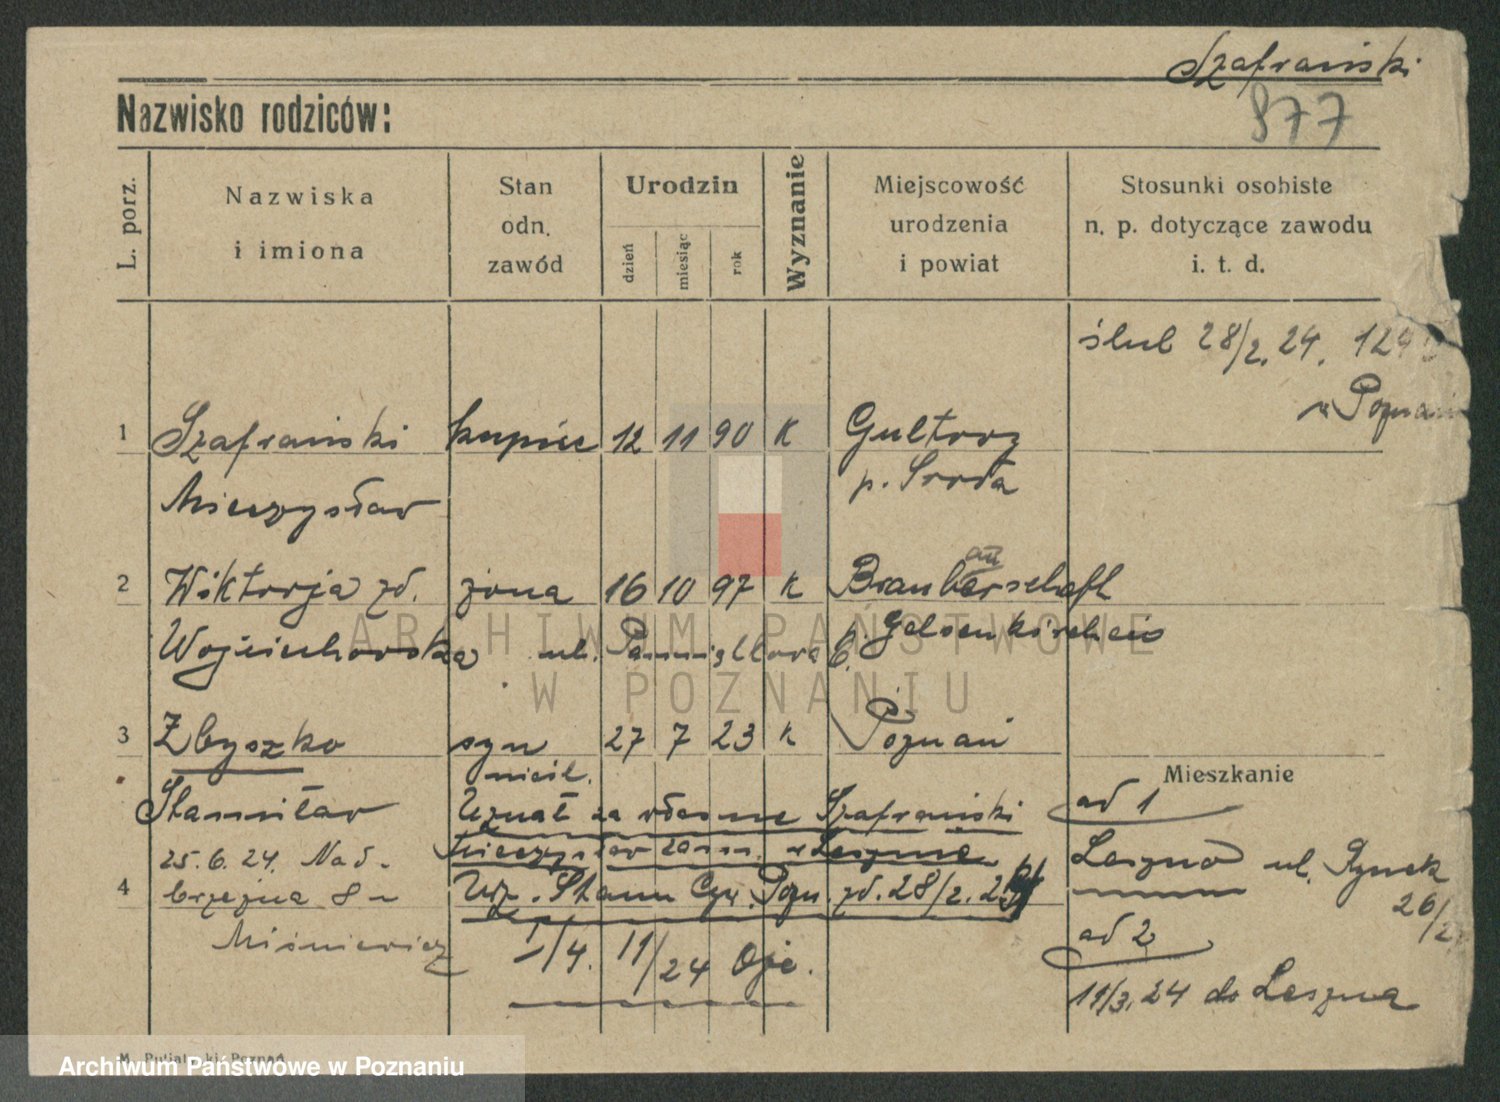 Szafrański
877
Nazwisko rodziców:
L. porz.
Nazwiska
i imiona
Stan
odn.
zawód
Urodzin
dzień
miesiąc
rok
Wyznanie
Miejscowość
urodzenia
i powiat
Stosunki osobiste
n. p. dotyczące zawodu
i. t. d.
ślub 28/2. 24.
w Poznań
1 Szafrański kupiec 12 11 90 K Gultowy
Mieczysław p. Środa
2 Wiktorja zd. żona 16 10 97 K
Wojciechowska ul. p. Gelsenkirchen
3 Zbyszko syn 27 7 23 k Poznań
nieśl.
Mieszkanie
Stanisław Uznał za własne Szafrański ad 1
25.6.24. Nad- Mieczysław zam. w Lesznie Leszno ul. Rynek
4 brzeżna 8 Urz. Stanu Cyw. Pozn. zd. 28/2. 26/2
Miśniewicz 1/4. 11/24 ad 2
11/3. 24 do Leszna
M. Putiatycki Poznań
ARCHIWUM PAŃSTWOWE
W POZNANIU
Archiwum Państwowe w Poznaniu